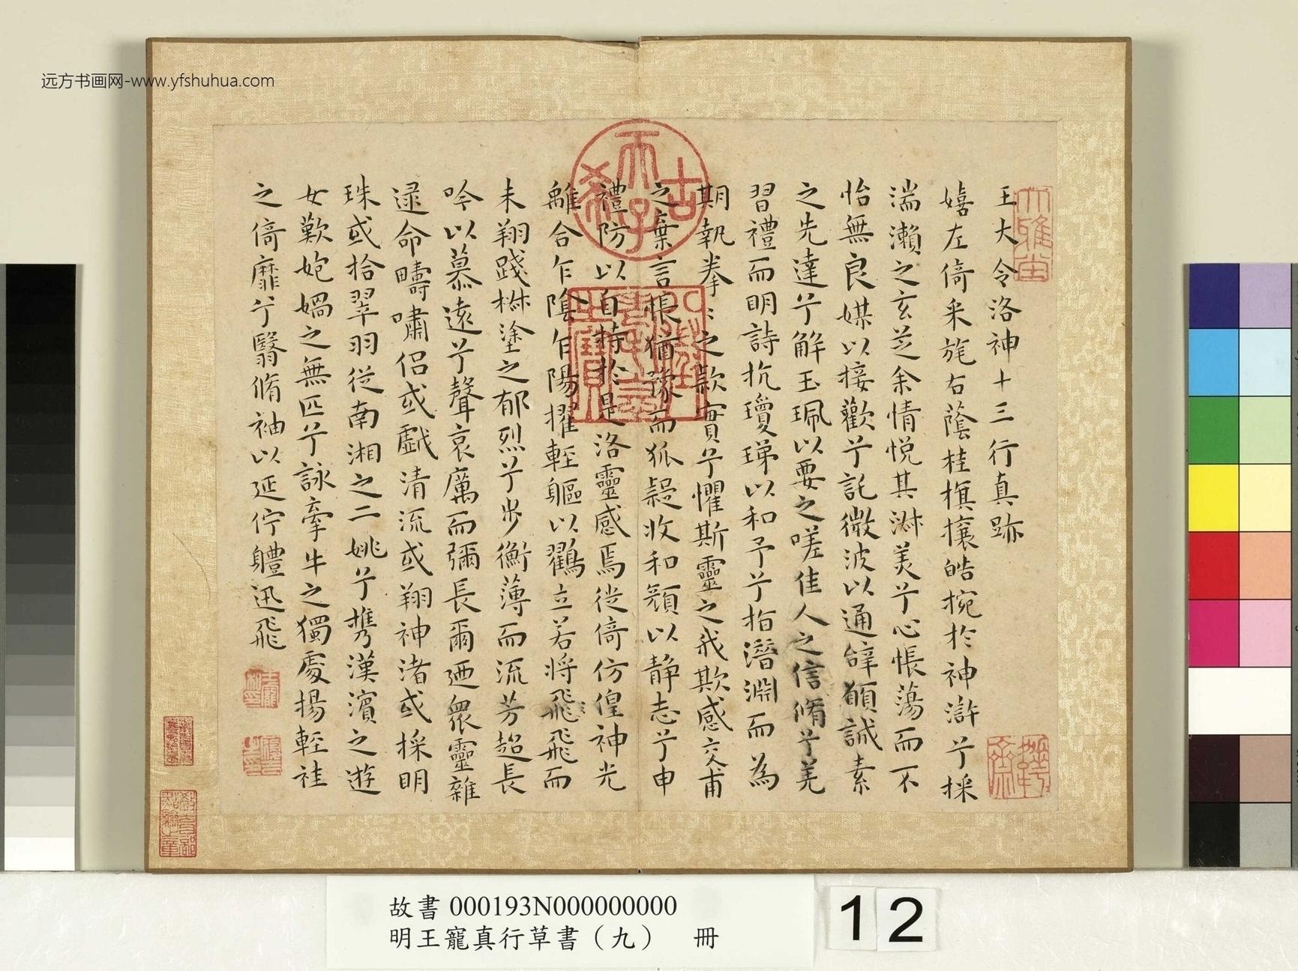 远方书画网-www.yfshuhua.com
王大令洛神十三行真跡
嬉左倚采旄右蔭桂旗攘皓捥於神滸兮採
湍瀨之玄芝余情悅其淋美兮心悵蕩而不
怡無良媒以接歡兮託微波以通辭願誠素
之先達兮解玉珮以要之嗟佳人之信脩兮羌
習禮而明詩抗瓊珶以和予兮指潛淵而為
期執拳〻之款實兮懼斯靈之我欺感交甫
之棄言悵猶豫而狐疑收和顏以静志兮申
禮防以自持於是洛靈感焉徙倚仿偟神光
離合乍陰乍陽擢輕軀以鸖立若將飛飛而
未翔踐椒塗之郁烈兮步衡薄而流芳超長
吟以慕遠兮聲哀厲而彌長爾迺衆靈雜
遝命疇嘯侶或戲清流或翔神渚或採明
珠或拾翠羽從南湘之二姚兮携漢濱之遊
女歎匏媧之無匹兮詠牽牛之獨處揚輕袿
之倚靡兮翳脩袖以延佇體迅飛
古希天子
八徵耄念之寶
故書 000193N000000000
明王寵真行草書（九） 冊
12